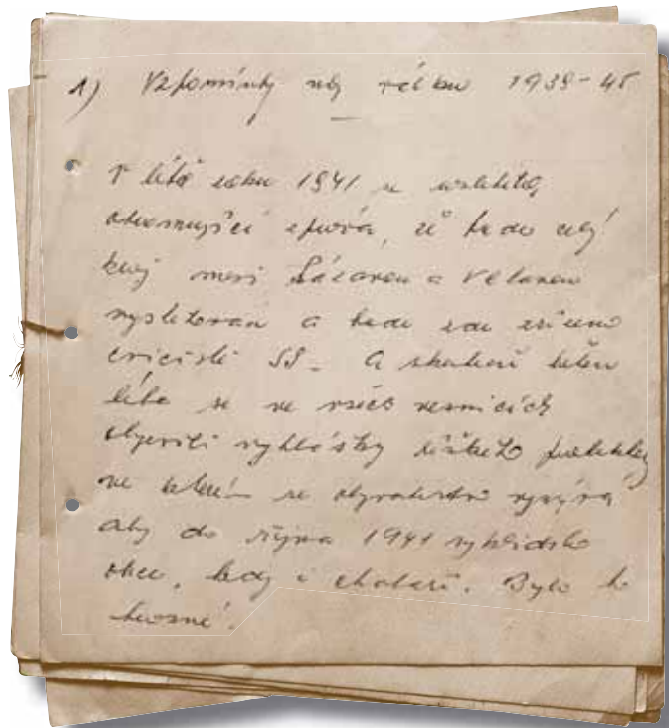 1) Vzpomínky na válku 1939-45
V létě roku 1941 se rozlétla
ohromující zpráva, že bude celý
kraj mezi Sázavou a Vltavou
vystěhován a bude zde zřízeno
cvičiště SS. A skutečně během
léta se ve všech vesnicích
objevily vyhlášky říšského
ve kterém se obyvatelstvo vyzývá
aby do října 1941 vyklidilo
obce, tedy i chataři. Bylo to
hrozné.